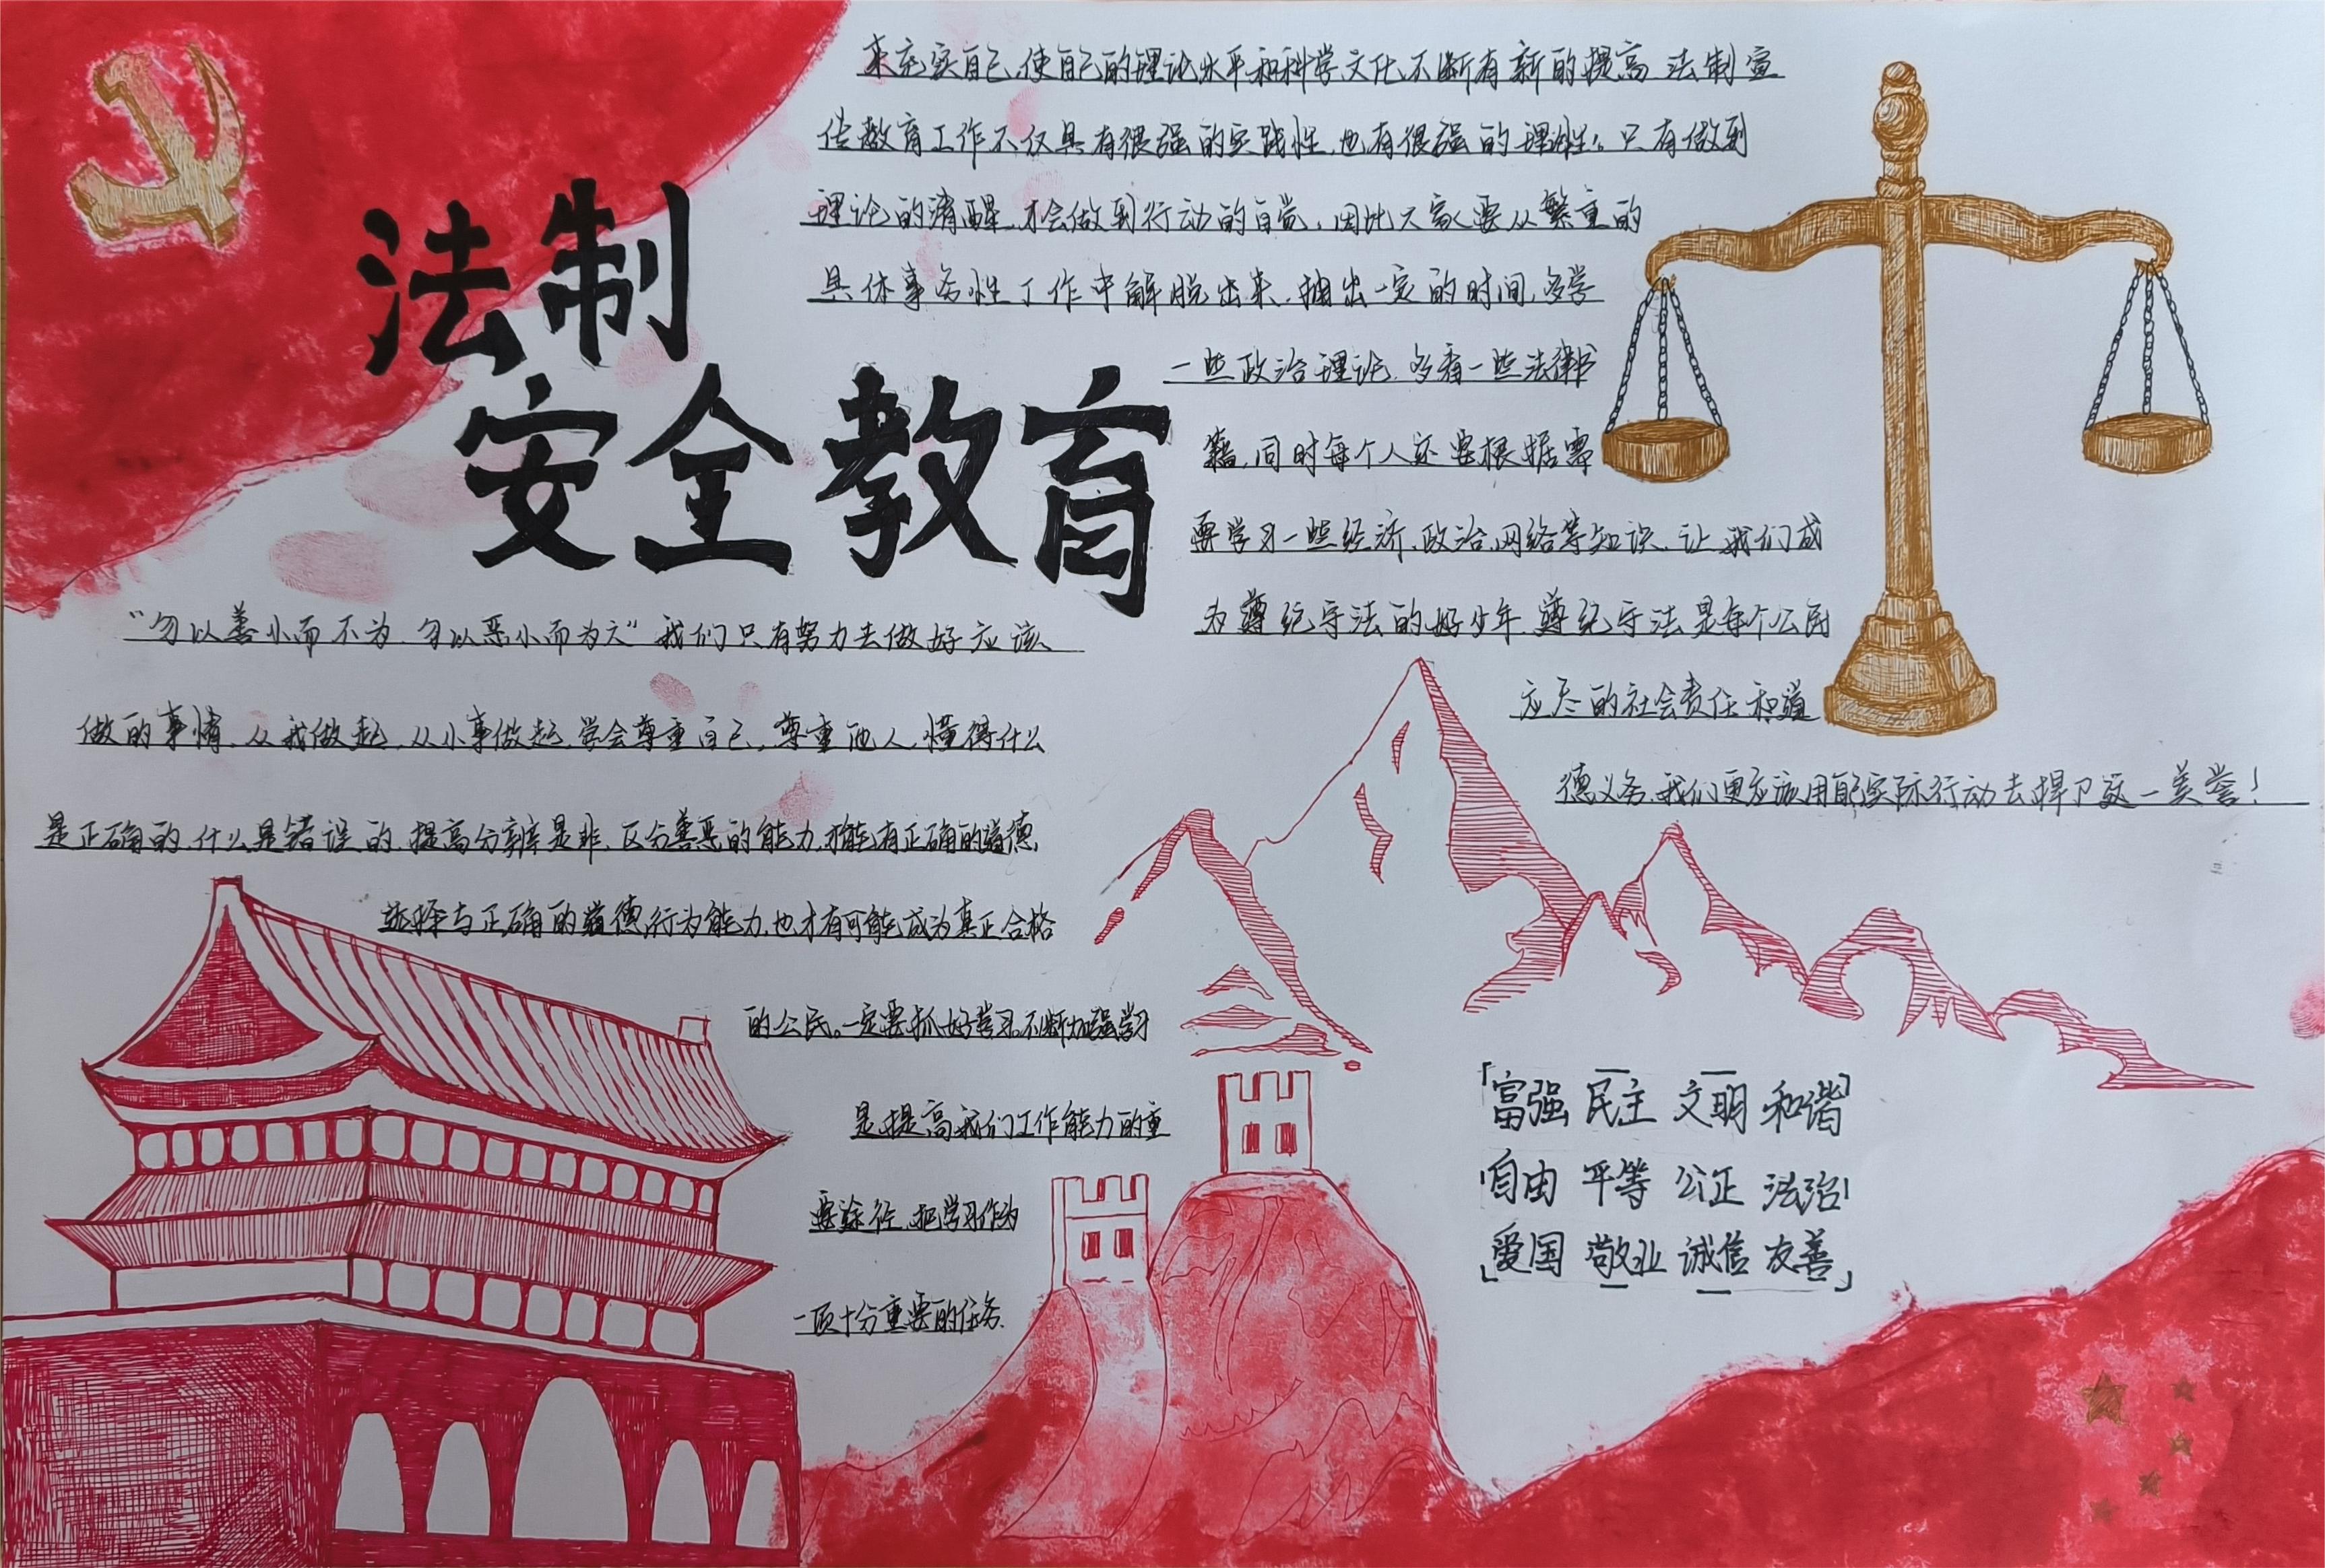 法制
安全教育
“勿以善小而不为,勿以恶小而为之”我们只有努力去做好应该
做的事情,从我做起,从小事做起,学会尊重自己,尊重他人,懂得什么
是正确的,什么是错误的,提高分辨是非,区分善恶的能力,才能有正确的道德,
选择与正确的道德,行为能力,也才有可能成为真正合格
的公民。一定要抓好学习。不断加强学习
是提高我们工作能力的重
要途径,把学习作为
一项十分重要的任务.
来充实自己,使自己的理论水平和科学文化不断有新的提高 法制宣
传教育工作不仅具有很强的实践性,也有很强的理性。只有做到
理论的清醒,才会做到行动的自觉,因此大家要从繁重的
具体事务性工作中解脱出来,抽出一定的时间,多学
一些政治理论,多看一些法律书
籍,同时每个人还要根据需
要学习一些经济,政治,网络等知识,让我们成
为遵纪守法的好少年,遵纪守法是每个公民
应尽的社会责任和道
德义务,我们更应该用的实际行动去捍卫这一美誉!
「富强 民主 文明 和谐
自由 平等 公正 法治
爱国 敬业 诚信 友善」